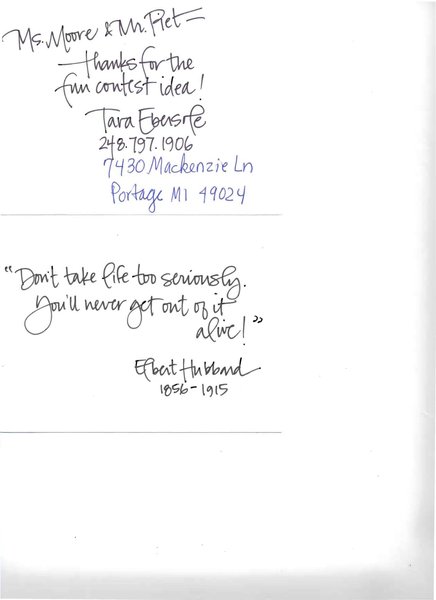 Ms. Moore & Mr. Piet —
thanks for the
fun contest idea!
Tara Ebersole
248.797.1906
7430 Mackenzie Ln
Portage MI 49024
"Don't take life too seriously.
You'll never get out of it
alive!"
Elbert Hubbard
1856-1915